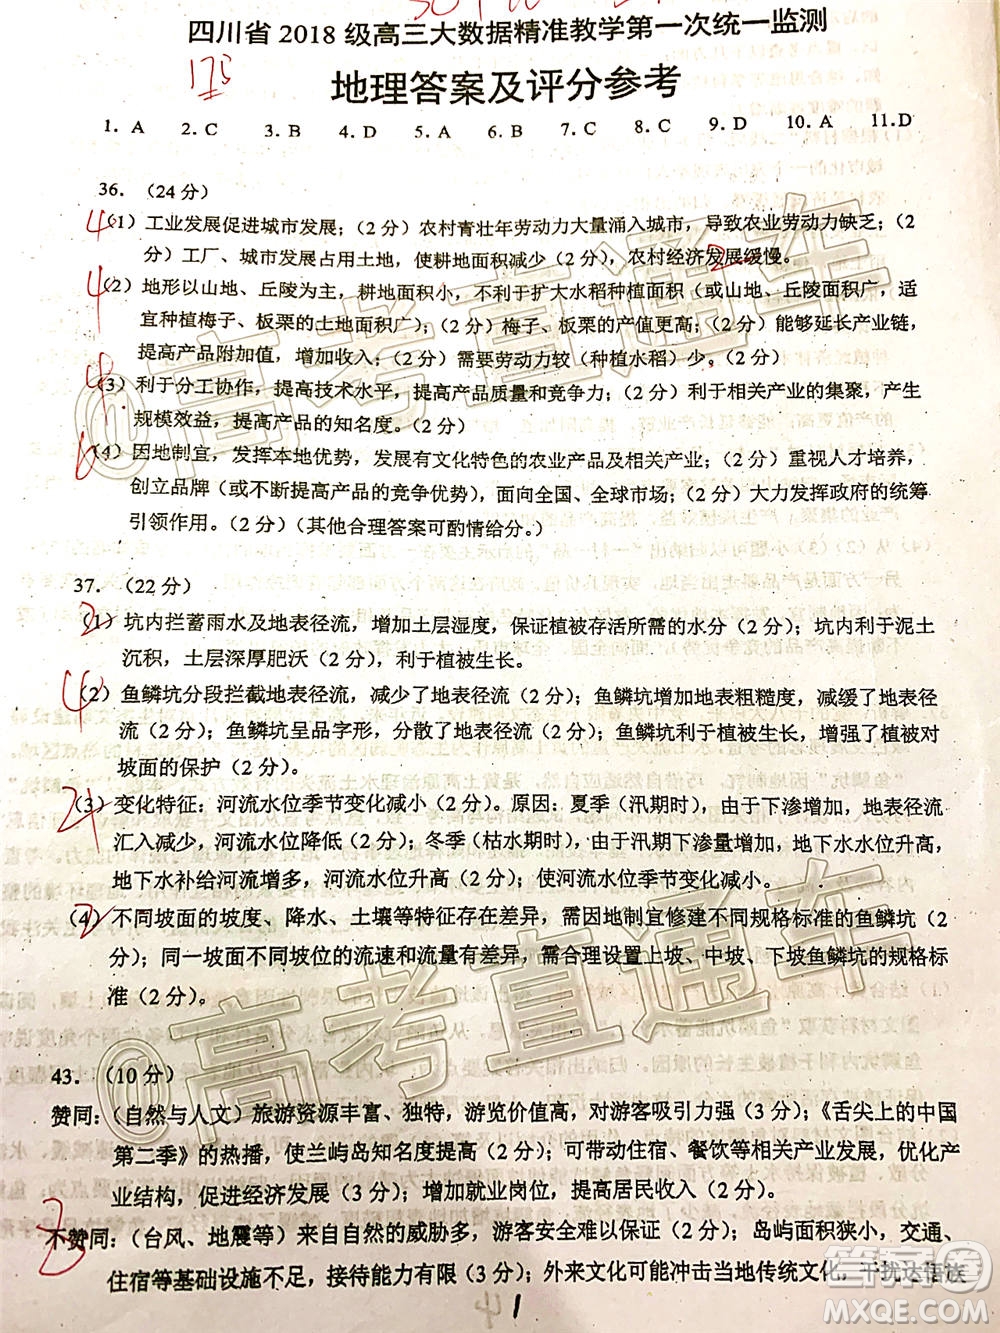 四川省 2018 级高三大数据精准教学第一次统一监测
175
地理答案及评分参考
1. A 2. C 3. B 4. D 5. A 6. B 7. C 8. C 9. D 10. A 11.D
36. （24 分）
4 (1) 工业发展促进城市发展；（2 分）农村青壮年劳动力大量涌入城市，导致农业劳动力缺乏；（2
分）工厂、城市发展占用土地，使耕地面积减少（2 分），农村经济发展缓慢。
4 (2) 地形以山地、丘陵为主，耕地面积小，不利于扩大水稻种植面积（或山地、丘陵面积广，适
宜种植梅子、板栗的土地面积广）；（2 分）梅子、板栗的产值更高；（2 分）能够延长产业链，
提高产品附加值，增加收入；（2 分）需要劳动力较（种植水稻）少。（2 分）
(3) 利于分工协作，提高技术水平，提高产品质量和竞争力；（2 分）利于相关产业的集聚，产生
规模效益，提高产品的知名度。（2 分）
6 (4) 因地制宜，发挥本地优势，发展有文化特色的农业产品及相关产业；（2 分）重视人才培养，
创立品牌（或不断提高产品的竞争优势），面向全国、全球市场；（2 分）大力发挥政府的统筹
引领作用。（2 分）（其他合理答案可酌情给分。）
37. （22 分）
2 (1) 坑内拦蓄雨水及地表径流，增加土层湿度，保证植被存活所需的水分（2 分）；坑内利于泥土
沉积，土层深厚肥沃（2 分），利于植被生长。
4 (2) 鱼鳞坑分段拦截地表径流，减少了地表径流（2 分）；鱼鳞坑增加地表粗糙度，减缓了地表径
流流速（2 分）；鱼鳞坑呈品字形，分散了地表径流（2 分）；鱼鳞坑利于植被生长，增强了植被对
坡面的保护（2 分）
(3) 变化特征：河流水位季节变化减小（2 分）。原因：夏季（汛期时），由于下渗增加，地表径流
汇入减少，河流水位降低（2 分）；冬季（枯水期时），由于汛期下渗量增加，地下水水位升高，
地下水补给河流增多，河流水位升高（2 分）；使河流水位季节变化减小。
2 (4) 不同坡面的坡度、降水、土壤等特征存在差异，需因地制宜修建不同规格标准的鱼鳞坑（2
分）；同一坡面不同坡位的流速和流量有差异，需合理设置上坡、中坡、下坡鱼鳞坑的规格标
准（2 分）。
43. （10 分）
赞同：（自然与人文）旅游资源丰富、独特，游览价值高，对游客吸引力强（3 分）；《舌尖上的中国
第二季》的热播，使兰屿岛知名度提高（2 分）；可带动住宿、餐饮等相关产业发展，优化
产业结构，促进经济发展（3 分）；增加就业岗位，提高居民收入（2 分）。
3 不赞同：（台风、地震等）来自自然的威胁多，游客安全难以保证（2 分）；岛屿面积狭小，交通、
住宿等基础设施不足，接待能力有限（3 分）；外来文化可能冲击当地传统文化，干扰达悟族
1
@高考直通车
@高考直通车
答案圈
MXQE.COM